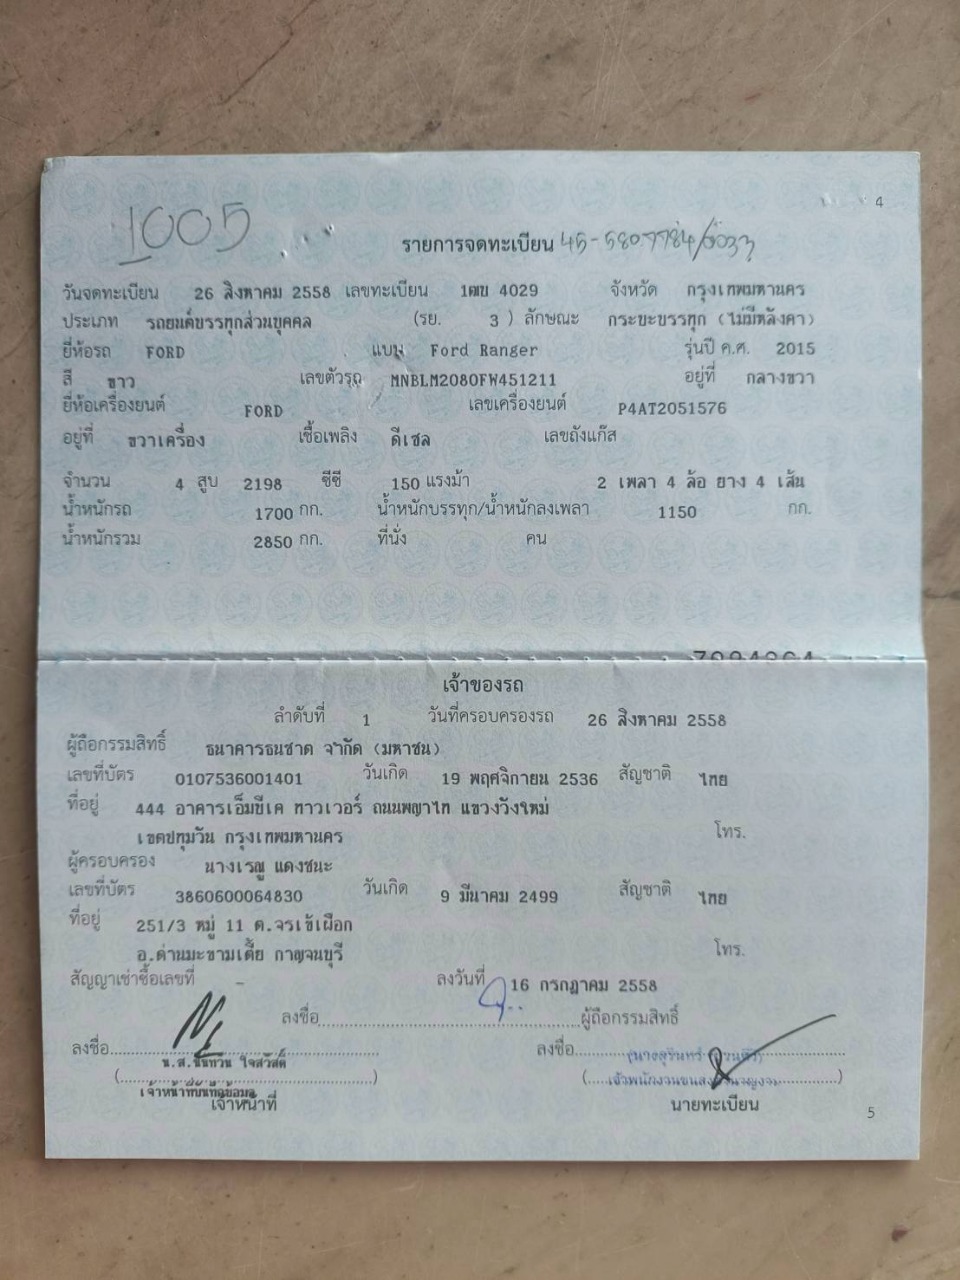 4
1005
รายการจดทะเบียน
วันจดทะเบียน 26 สิงหาคม 2558 เลขทะเบียน 1ฒข 4029 จังหวัด กรุงเทพมหานคร
ประเภท รถยนต์บรรทุกส่วนบุคคล (รย. 3 ) ลักษณะ กระบะบรรทุก (ไม่มีหลังคา)
ยี่ห้อรถ FORD แบบ Ford Ranger รุ่นปี ค.ศ. 2015
สี ขาว เลขตัวรถ MNBLM2080FW451211 อยู่ที่ กลางขวา
ยี่ห้อเครื่องยนต์ FORD เลขเครื่องยนต์ P4AT2051576
อยู่ที่ ขวาเครื่อง เชื้อเพลิง ดีเซล เลขถังแก๊ส
จำนวน 4 สูบ 2198 ซีซี 150 แรงม้า 2 เพลา 4 ล้อ ยาง 4 เส้น
น้ำหนักรถ 1700 กก. น้ำหนักบรรทุก/น้ำหนักลงเพลา 1150 กก.
น้ำหนักรวม 2850 กก. ที่นั่ง คน
เจ้าของรถ
ลำดับที่ 1 วันที่ครอบครองรถ 26 สิงหาคม 2558
ผู้ถือกรรมสิทธิ์ ธนาคารธนชาต จำกัด (มหาชน)
เลขที่บัตร 0107536001401 วันเกิด 19 พฤศจิกายน 2536 สัญชาติ ไทย
ที่อยู่ 444 อาคารเอ็มบีเค ทาวเวอร์ ถนนพญาไท แขวงวังใหม่
เขตปทุมวัน กรุงเทพมหานคร โทร.
ผู้ครอบครอง นางเรณู แดงชนะ
เลขที่บัตร 3860600064830 วันเกิด 9 มีนาคม 2499 สัญชาติ ไทย
ที่อยู่ 251/3 หมู่ 11 ต.จรเข้เผือก
อ.ด่านมะขามเตี้ย กาญจนบุรี โทร.
สัญญาเช่าซื้อเลขที่ - ลงวันที่ 16 กรกฎาคม 2558
ลงชื่อ ผู้ถือกรรมสิทธิ์
ลงชื่อ ลงชื่อ
น.ส.นันทวน ใจสวัสดิ์
เจ้าหน้าที่บันทึกข้อมูล
เจ้าหน้าที่ นายทะเบียน
5